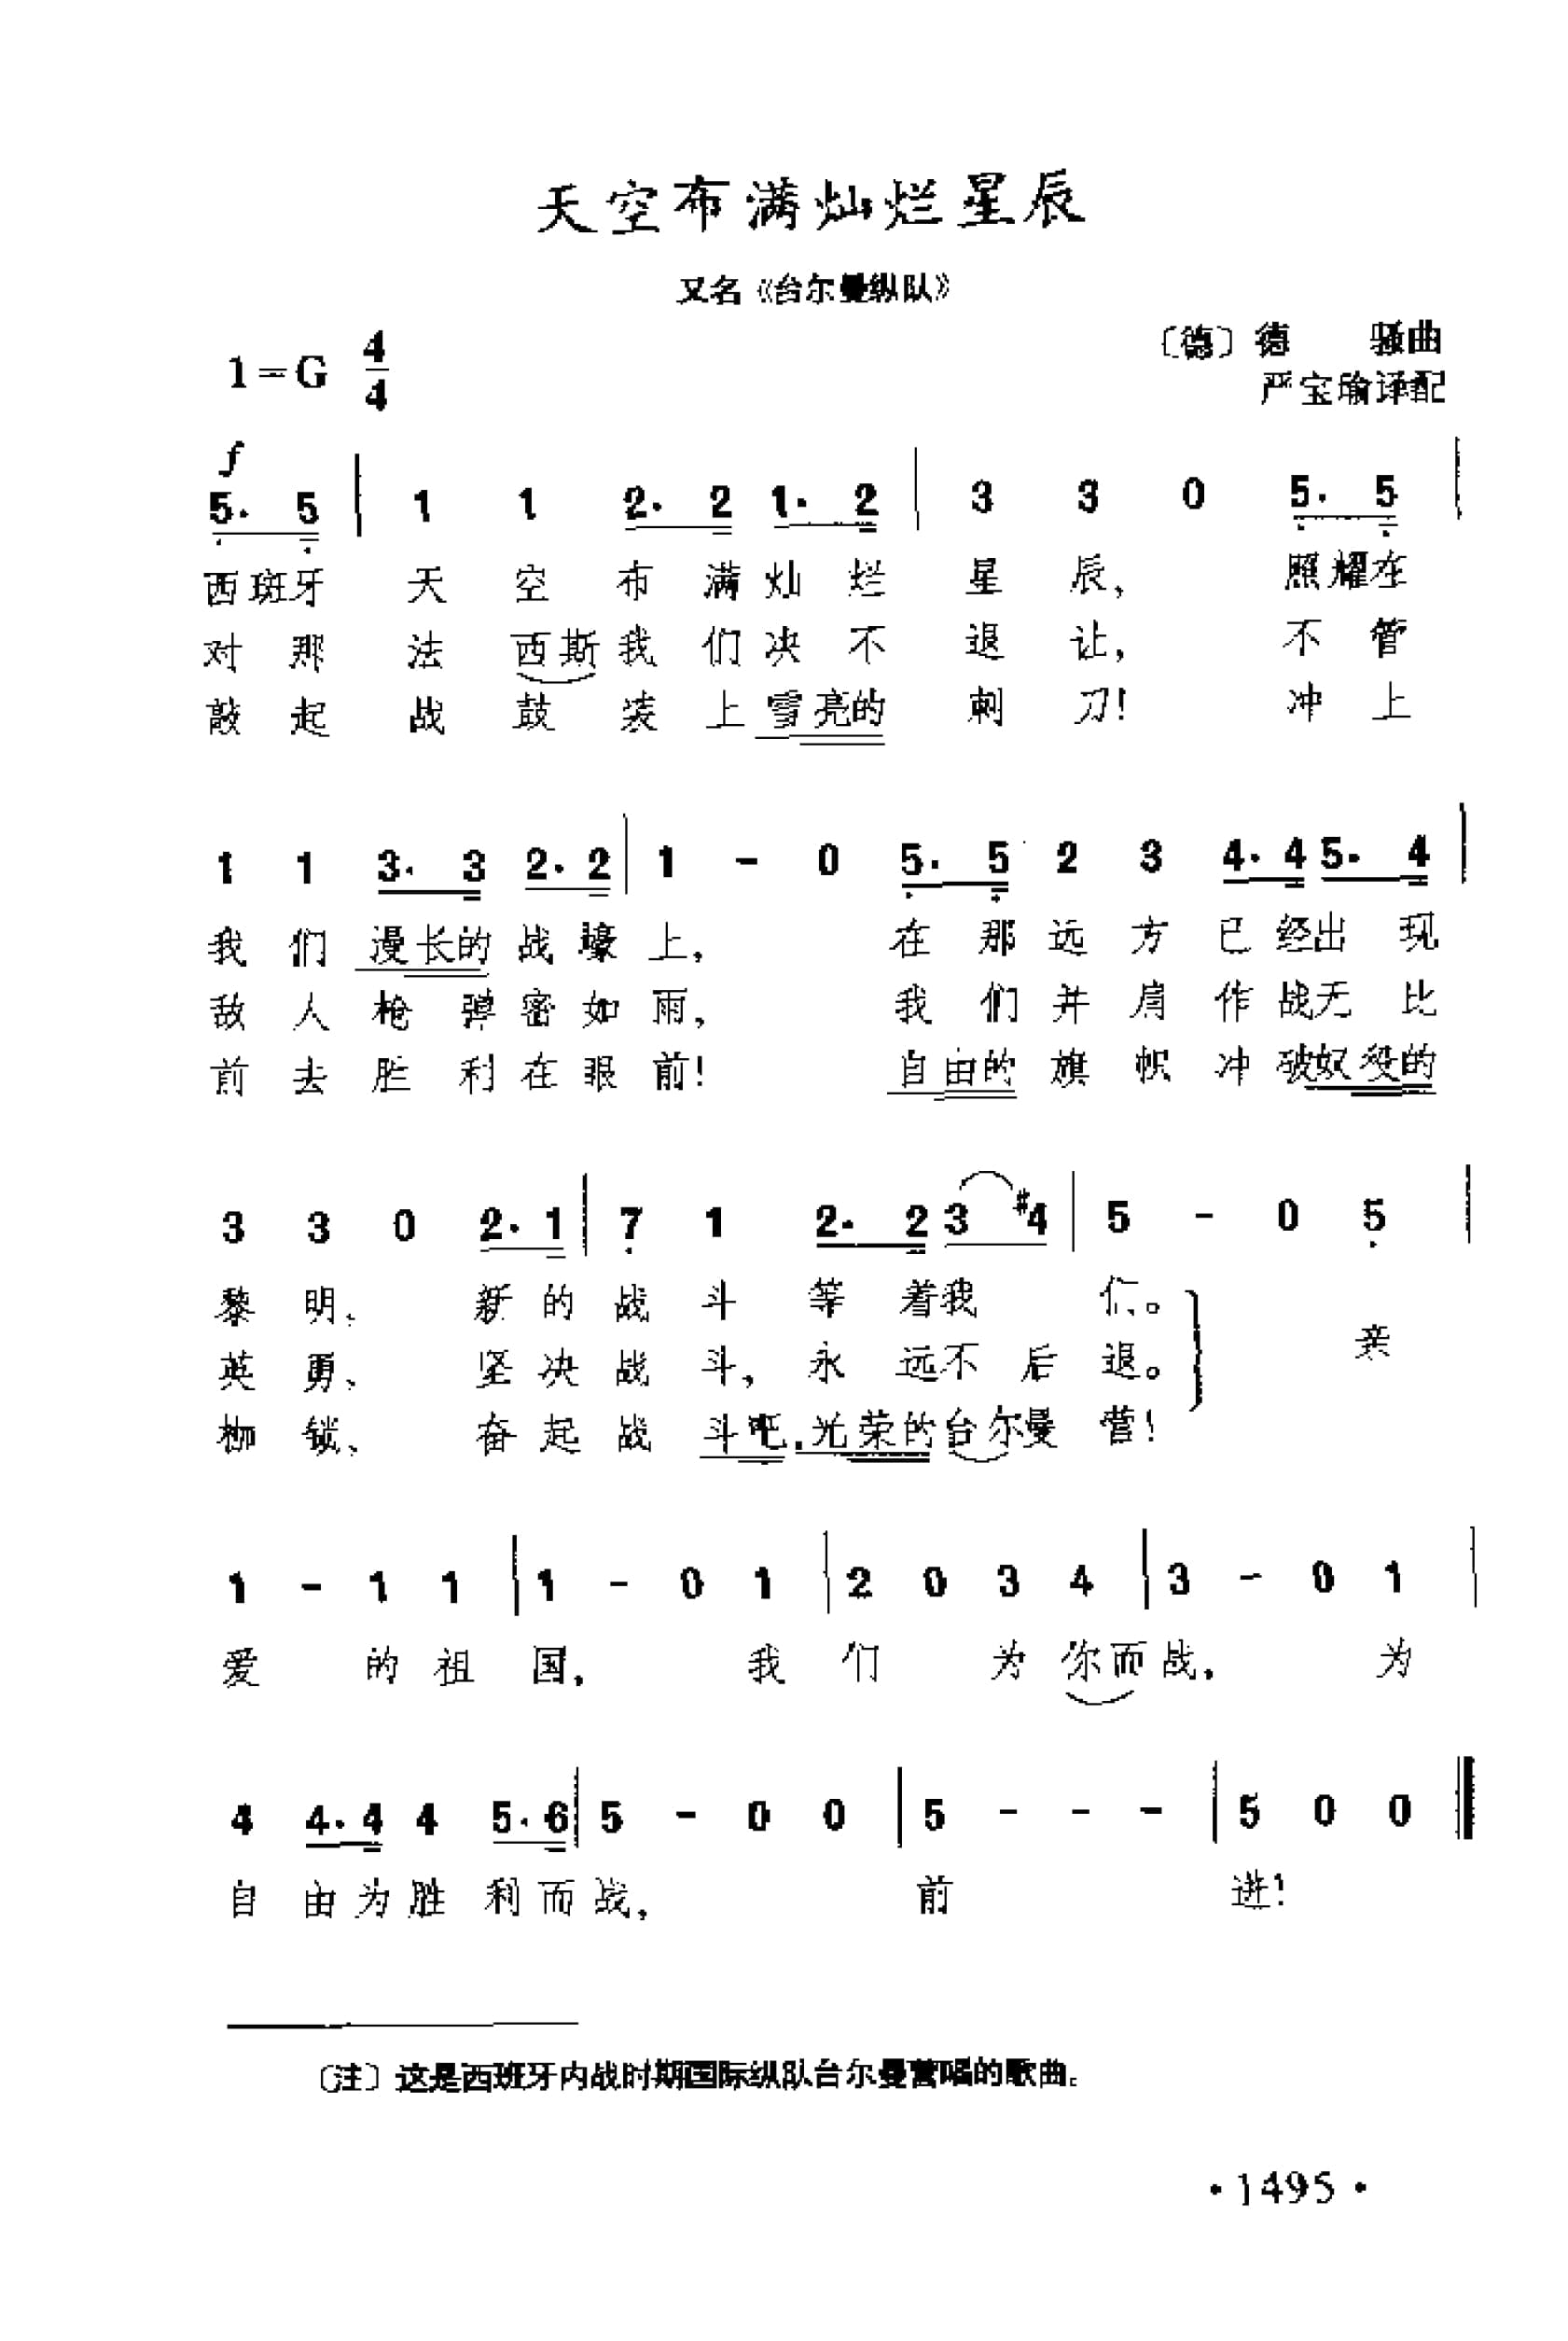 天空布满灿烂星辰
又名《台尔曼纵队》
〔德〕德 骚曲
1=G 4/4
严宝瑜译配
f
5. 5 | 1 1 2. 2 1. 2 | 3 3 0 5. 5 |
西班牙 天 空 布 满 灿 烂 星 辰, 照耀在
对 那 法 西斯 我 们 决 不 退 让, 不 管
敲 起 战 鼓 装 上 雪亮的 刺 刀! 冲 上
1 1 3. 3 2. 2 | 1 - 0 5. 5 2 3 4. 4 5. 4 |
我 们 漫长的 战 壕 上, 在 那 远 方 已 经 出 现
敌 人 枪 弹 密 如 雨, 我 们 并 肩 作 战 无 比
前 去 胜 利 在 眼 前! 自由的 旗 帜 冲 破 奴役的
3 3 0 2. 1 | 7 1 2. 2 3 #4 | 5 - 0 5 |
黎 明、 新 的 战 斗 等 着 我 们。
英 勇、 坚 决 战 斗, 永 远 不 后 退。 亲
枷 锁、 奋 起 战 斗吧,光荣的台尔曼 营!
1 - 1 1 | 1 - 0 1 | 2 0 3 4 | 3 - 0 1 |
爱 的 祖 国, 我 们 为 你而 战, 为
4 4. 4 4 5. 6 | 5 - 0 0 | 5 - - - | 5 0 0 ‖
自 由 为 胜 利 而 战, 前 进!
〔注〕这是西班牙内战时期国际纵队台尔曼营唱的歌曲。
·1495·